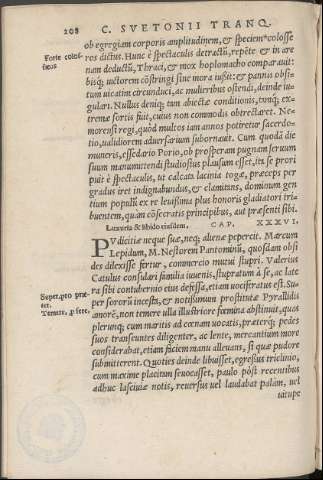 208 C. SVETONII TRANQ.
ob egregiam corporis amplitudinem, & speciem*colosse
Forte colos-
seros
ros dictus. Hunc è spectaculis detractũ, repẽte & in are
nam deductũ, Thraci, & mox hoplomacho comparauit:
bisq; uictorem cõstringi sine mora iussit: & pannis obsi-
tum uicatim circunduci, ac mulieribus ostendi, deinde iu-
gulari. Nullus deniq; tam abiectæ conditionis, tamq; ex-
tremæ sortis fuit, cuius non commodis obtrectaret. Ne-
morensi regi, quòd multos iam annos potiretur sacerdo-
tio, ualidiorem aduersarium subornauit. Cum quodã die
muneris, essedario Porio, ob prosperam pugnam seruum
suum manumittendi studiosius plausum esset, ita se prori
puit è spectaculis, ut calcata lacinia togæ, præceps per
gradus iret indignabundus, & clamitans, dominum gen
tium populũ ex re leuissima plus honoris gladiatori tri-
buentem, quàm cõsecratis principibus, aut præsenti sibi.
Luxuria & libido eiusdem. CAP. XXXVI.
PVdicitiæ neque suæ, neq; alienæ pepercit. Marcum
Lepidum, M. Nestorem Pantomimũ, quosdam obsi
des dilexisse fertur, commercio mutui stupri. Valerius
Catulus consulari familia iuuenis, stupratum à se, ac late
ra sibi contubernio eius defessa, etiam uociferatus est. Su-
Super, pro præ
ter.
per sororũ incesta, & notissimum prostitutæ Pyrallidis
Temere, p fere.
amorẽ, non temere ulla illustriore fœmina abstinuit, quas
plerunq; cum maritis ad cœnam uocatis, præterq; pedes
suos transeuntes diligenter, ac lente, mercantium more
considerabat, etiam faciem manu alleuans, si quæ pudore
submitterent. Quoties deinde libuisset, egressus triclinio,
cum maxime placitam seuocasset, paulo pòst recentibus
adhuc lasciuiæ notis, reuersus uel laudabat palàm, uel
uitupe